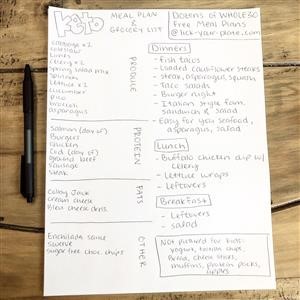 keto
MEAL PLAN
& GROCERY LIST
DOZENS OF WHOLE30
Free Meal Plans
@lick-your-plate.com
PRODUCE
cabbage x2
coleslaw
limes
celery x2
spring salad mix
spinach
lettuce x2
cucumber
pico
broccoli
asparagus
PROTEIN
Salmon (day of)
Burgers
Chicken
Cod (day of)
ground beef
sausage
steak
FATS
Colby Jack
cream cheese
Bleu cheese dress.
OTHER
Enchilada sauce
Swerve
sugar free choc. chips
Dinners
- fish tacos
- Loaded cauliflower steaks
- steak, asparagus, squash
- Taco salads
- Burger night
- Italian style parm,
sandwich & salad
- Easy for you seafood,
asparagus, salad
Lunch
- Buffalo chicken dip w/
celery
- Lettuce wraps
- leftovers
Breakfast
- Leftovers
- salad
Not pictured for kids:
yogurt, tortilla chips,
Bread, cheese sticks,
muffins, protein packs,
apples